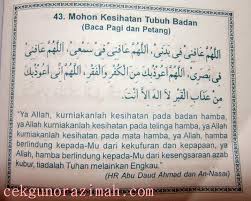 43. Mohon Kesihatan Tubuh Badan
(Baca Pagi dan Petang)
اَللَّهُمَّ عَافِنِيْ فِيْ بَدَنِيْ، اَللَّهُمَّ عَافِنِيْ فِيْ سَمْعِيْ، اَللَّهُمَّ عَافِنِيْ
فِيْ بَصَرِيْ، اَللَّهُمَّ إِنِّيْ أَعُوْذُبِكَ مِنَ الْكُفْرِ وَالْفَقْرِ، اَللَّهُمَّ إِنِّيْ أَعُوْذُبِكَ
مِنْ عَذَابِ الْقَبْرِ لاَ اِلَهَ اِلاَّ أَنْتَ.
"Ya Allah, kurniakanlah kesihatan pada badan hamba,
ya Allah kurniakanlah kesihatan pada telinga hamba, ya Allah
kurniakanlah kesihatan pada mata hamba, ya Allah, hamba
berlindung kepada-Mu dari kekufuran dan kepapaan, ya
Allah, hamba berlindung kepada-Mu dari kesengsaraan azab
kubur, tiadalah Tuhan melainkan Engkau."
(HR Abu Daud Ahmed dan An-Nasai)
cekgunorazimah.com